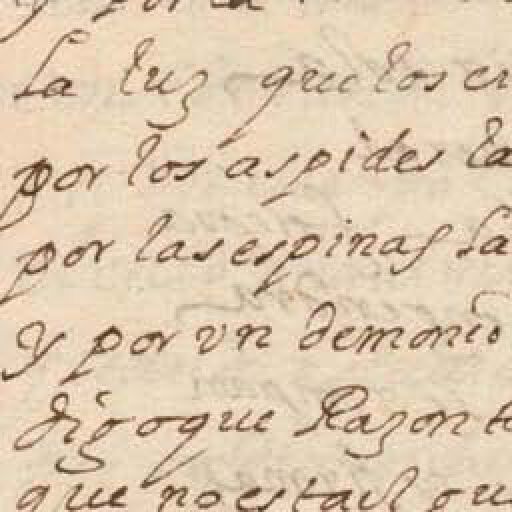 y por la
la luz que los
por los aspides la
por las espinas la
y por vn demonio
digo que Razon
que no esta